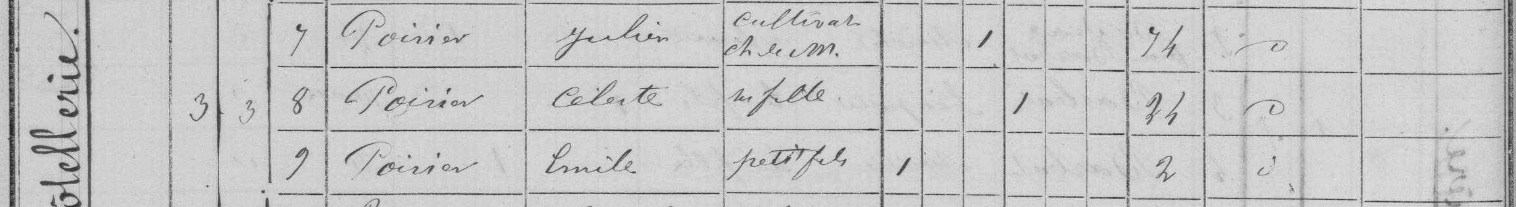 ôtellerie.
7 Poirier Julien cultivat 1 74 d
ch de M.
3 3 8 Poirier Céleste sa fille 1 24 d
9 Poirier Emile petit fils 1 2 d